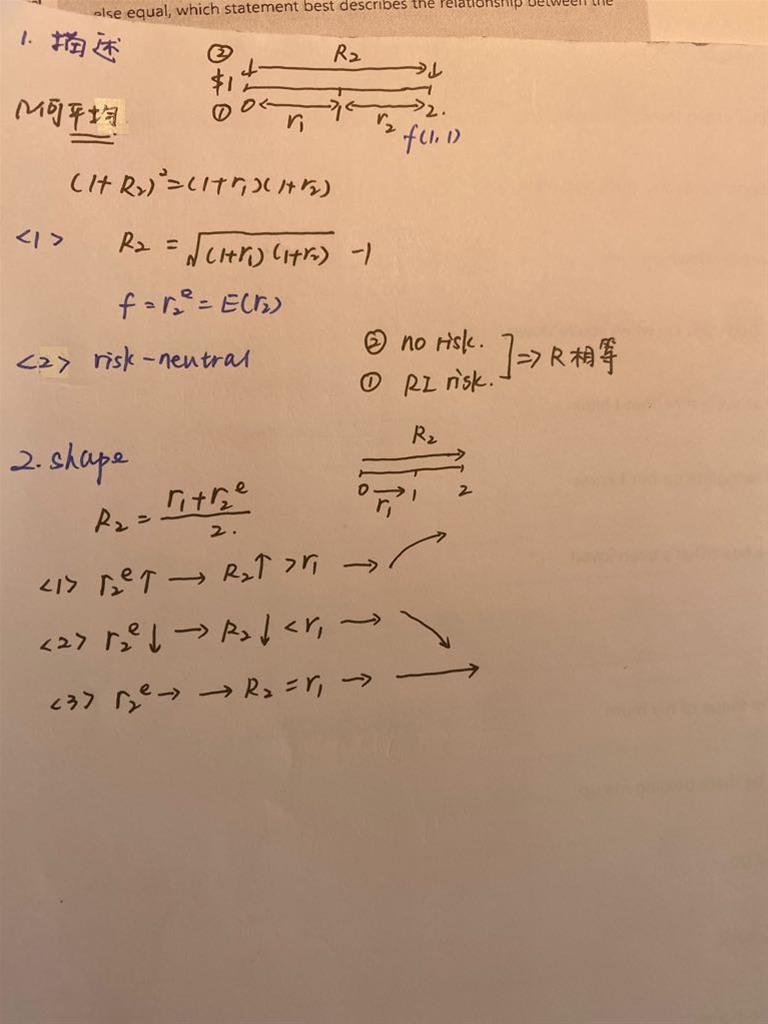 else equal, which statement best describes the relationship between the
1. 描述
② R₂
$1
① 0 r₁ 1 r₂ 2.
f(1,1)
几何平均
(1+R₂)²=(1+r₁)(1+r₂)
<1> R₂ = √(1+r₁)(1+r₂) -1
f = r₂ᵉ = E(r₂)
<2> risk-neutral
② no risk.
① RI risk. ] => R相等
2. shape
R₂
0 r₁ 1 2
R₂ = (r₁+r₂ᵉ)/2.
<1> r₂ᵉ↑ → R₂↑ >r₁ →
<2> r₂ᵉ↓ → R₂↓ <r₁ →
<3> r₂ᵉ→ → R₂ = r₁ →